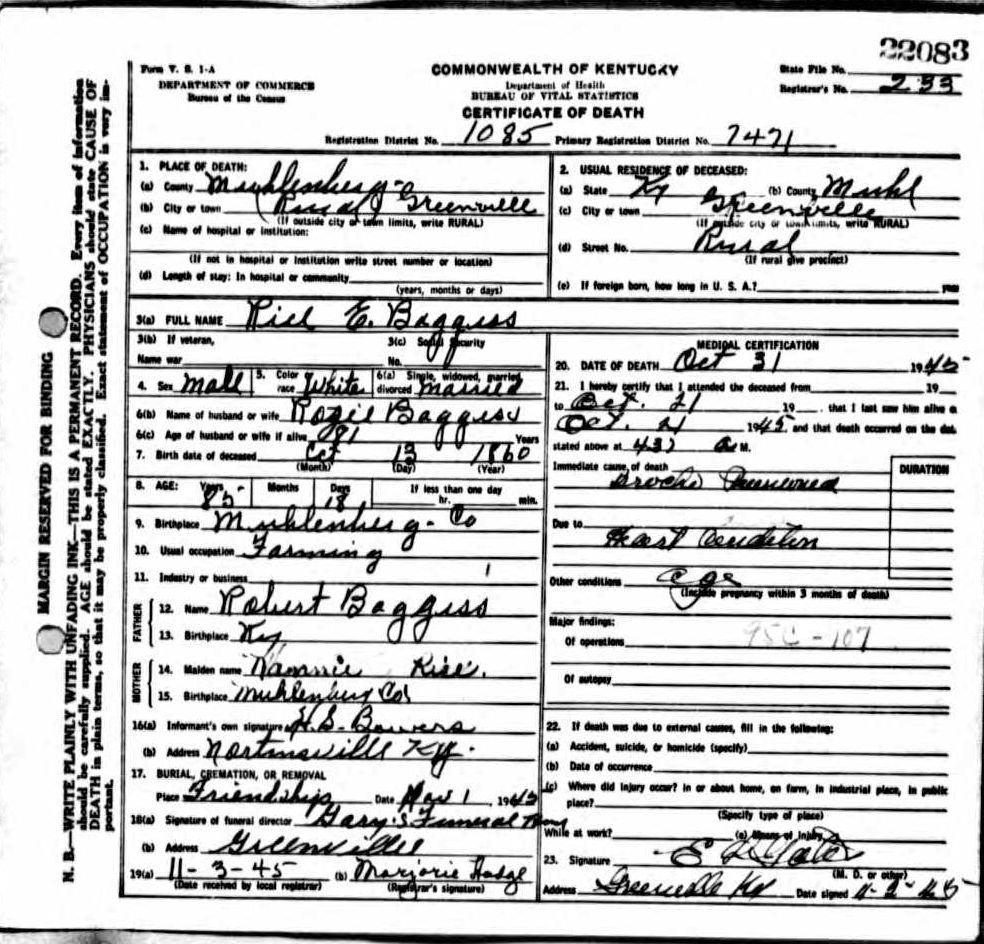 22083
Form V. S. 1-A
DEPARTMENT OF COMMERCE
Bureau of the Census
COMMONWEALTH OF KENTUCKY
Department of Health
BUREAU OF VITAL STATISTICS
CERTIFICATE OF DEATH
State File No.
Registrar's No. 233
Registration District No. 1085 Primary Registration District No. 7471
MARGIN RESERVED FOR BINDING
N. B.—WRITE PLAINLY WITH UNFADING INK—THIS IS A PERMANENT RECORD. Every item of information
should be carefully supplied. AGE should be stated EXACTLY. PHYSICIANS should state CAUSE OF
DEATH in plain terms, so that it may be properly classified. Exact statement of OCCUPATION is very im-
portant.
1. PLACE OF DEATH:
(a) County Muhlenberg
(b) City or town Rural Greenville
(If outside city or town limits, write RURAL)
(c) Name of hospital or institution:
(If not in hospital or institution write street number or location)
(d) Length of stay: In hospital or community
(years, months or days)
2. USUAL RESIDENCE OF DECEASED:
(a) State Ky (b) County Muhl
(c) City or town Greenville
(If outside city or town limits, write RURAL)
(d) Street No. Rural
(If rural give precinct)
(e) If foreign born, how long in U. S. A.? years
3(a) FULL NAME Rice E. Baggess
3(b) If veteran,
Name war
3(c) Social Security
No.
4. Sex Male 5. Color race White 6(a) Single, widowed, married, divorced Married
6(b) Name of husband or wife Rozie Baggess
6(c) Age of husband or wife if alive 81 Years
7. Birth date of deceased Oct 13 1860
(Month) (Day) (Year)
8. AGE: Years 85 Months Days 18 If less than one day
hr. min.
9. Birthplace Muhlenberg Co
10. Usual occupation Farming
11. Industry or business
FATHER
12. Name Robert Baggess
13. Birthplace Ky
MOTHER
14. Maiden name Nannie Rice.
15. Birthplace Muhlenburg Co
16(a) Informant's own signature H.S. Bowers
(b) Address Nortonsville Ky.
17. BURIAL, CREMATION, OR REMOVAL
Place Friendship Date Nov 1, 1945
18(a) Signature of funeral director Gary's Funeral Home
(b) Address Greenville
19(a) 11-3-45 (b) Marjorie Hodge
(Date received by local registrar) (Registrar's signature)
MEDICAL CERTIFICATION
20. DATE OF DEATH Oct 31 1945
21. I hereby certify that I attended the deceased from 19
to Oct. 21 19 , that I last saw him alive o
Oct. 21 1945 and that death occurred on the dat
stated above at 437 a M.
Immediate cause of death
DURATION
Broncho Pneumonia
Due to
Heart Condition
Other conditions age
(Include pregnancy within 3 months of death)
Major findings:
Of operations 95C-107
Of autopsy
22. If death was due to external causes, fill in the following:
(a) Accident, suicide, or homicide (specify)
(b) Date of occurrence
(c) Where did injury occur? In or about home, on farm, in industrial place, in public
place?
(Specify type of place)
While at work? (e) Means of injury
23. Signature
(M. D. or other)
Address Greenville Ky Date signed 11-2-45